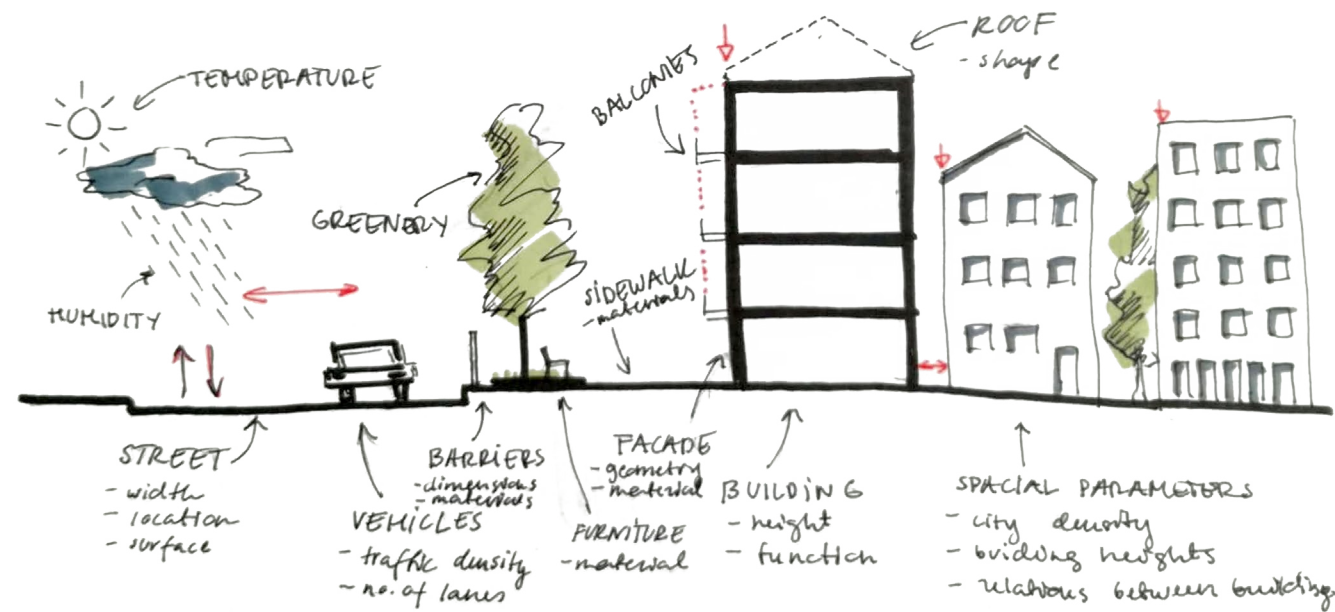 TEMPERATURE
HUMIDITY
GREENERY
BALCONIES
ROOF
- shape
SIDEWALK
- materials
STREET
- width
- location
- surface
VEHICLES
- traffic density
- no. of lanes
BARRIERS
- dimensions
- materials
FURNITURE
- material
FACADE
- geometry
- material
BUILDING
- height
- function
SPACIAL PARAMETERS
- city density
- building heights
- relations between building